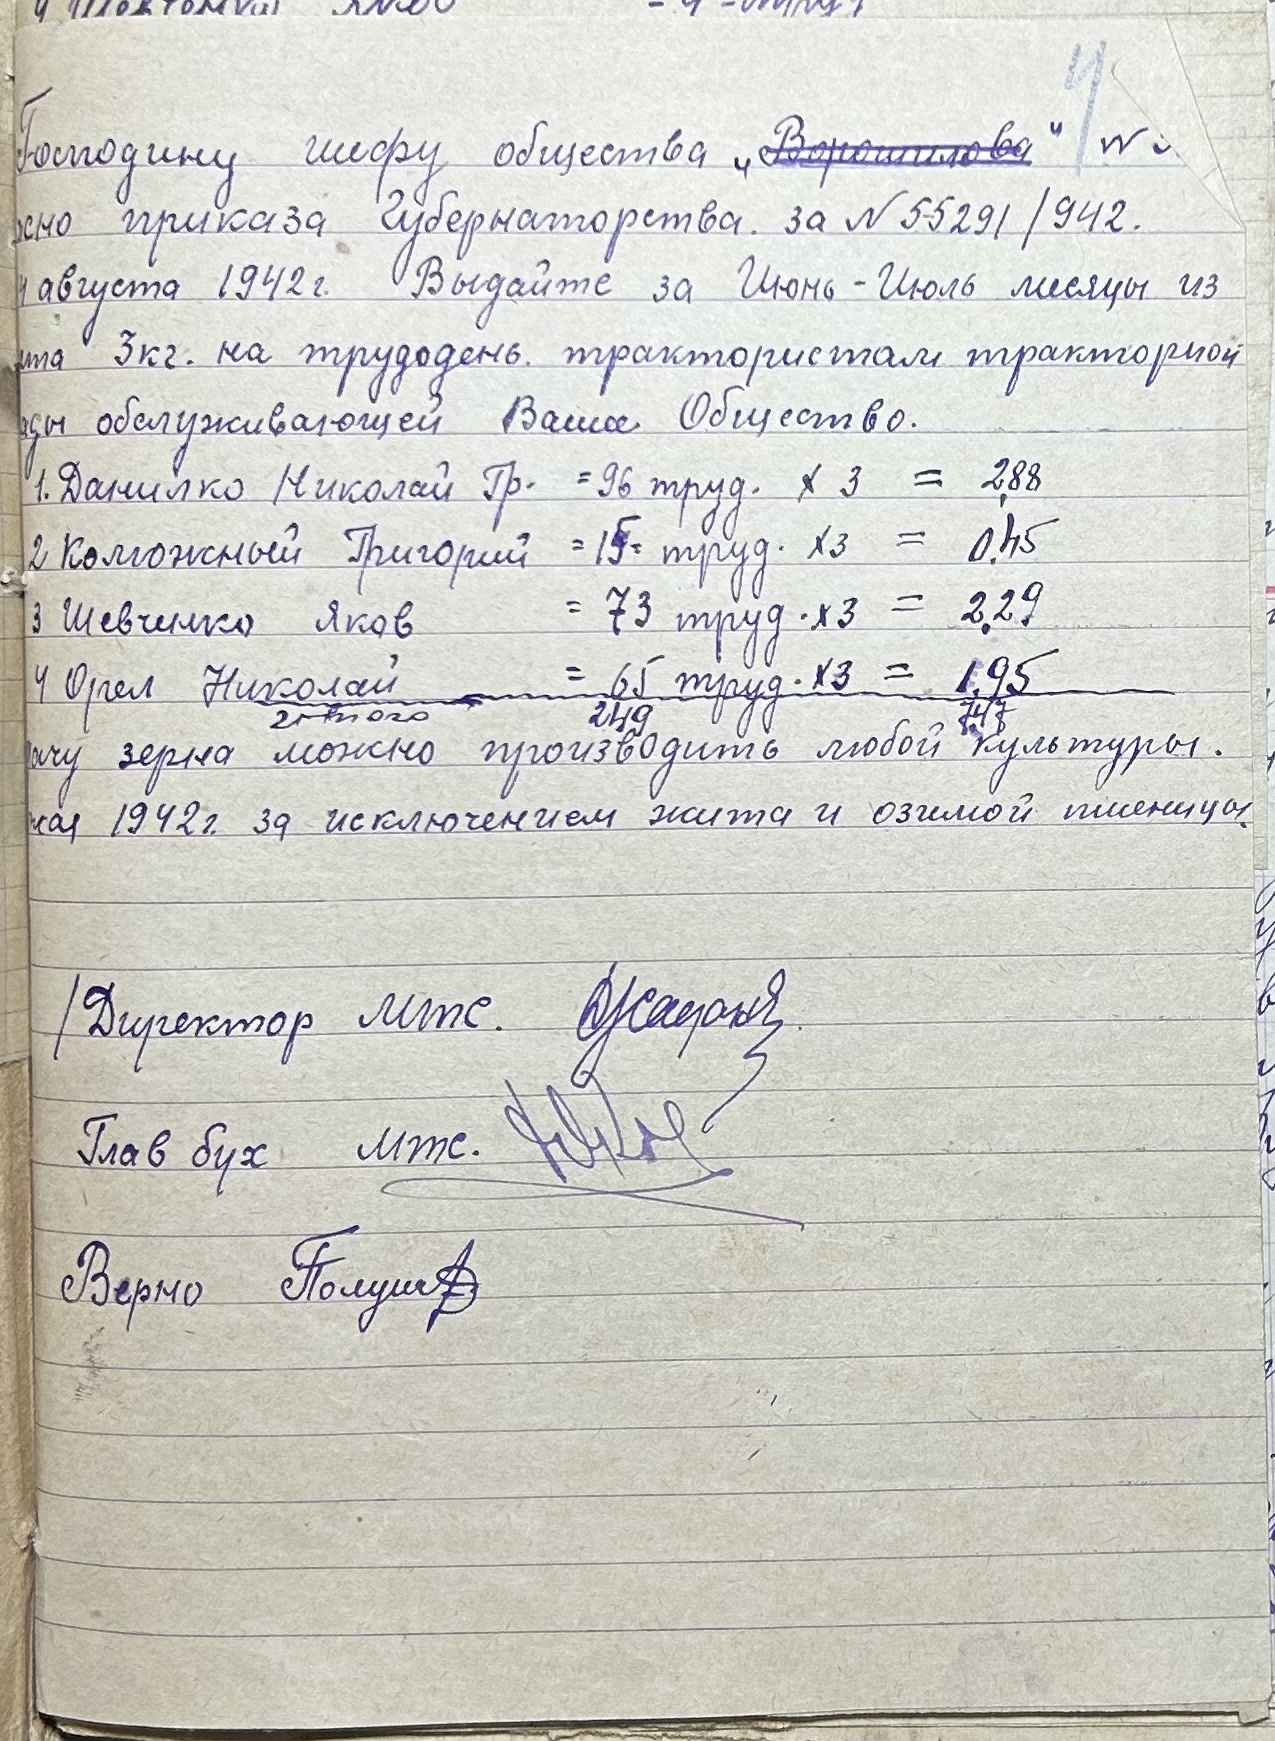 4
Господину шефу общества „Ворошилова" №
жно приказа Губернаторства. за № 55291/942.
4 августа 1942 г. Выдайте за Июнь - Июль месяцы из
та 3 кг. на трудодень. трактористам тракторной
ады обслуживающей Ваше Общество.
1. Данилко Николай Гр. = 96 труд. х 3 = 2,88
2 Колюжный Григорий = 15 = труд. х 3 = 0,45
3 Шевчилко Яков = 73 труд. х 3 = 2,29
4 Орел Николай = 65 труд. х 3 = 1,95
249 7,47
ачу зерна можно производить любой культуры.
жая 1942 г. за исключением жита и озимой пшеницы.
Директор МТС.
Глав бух МТС.
Верно